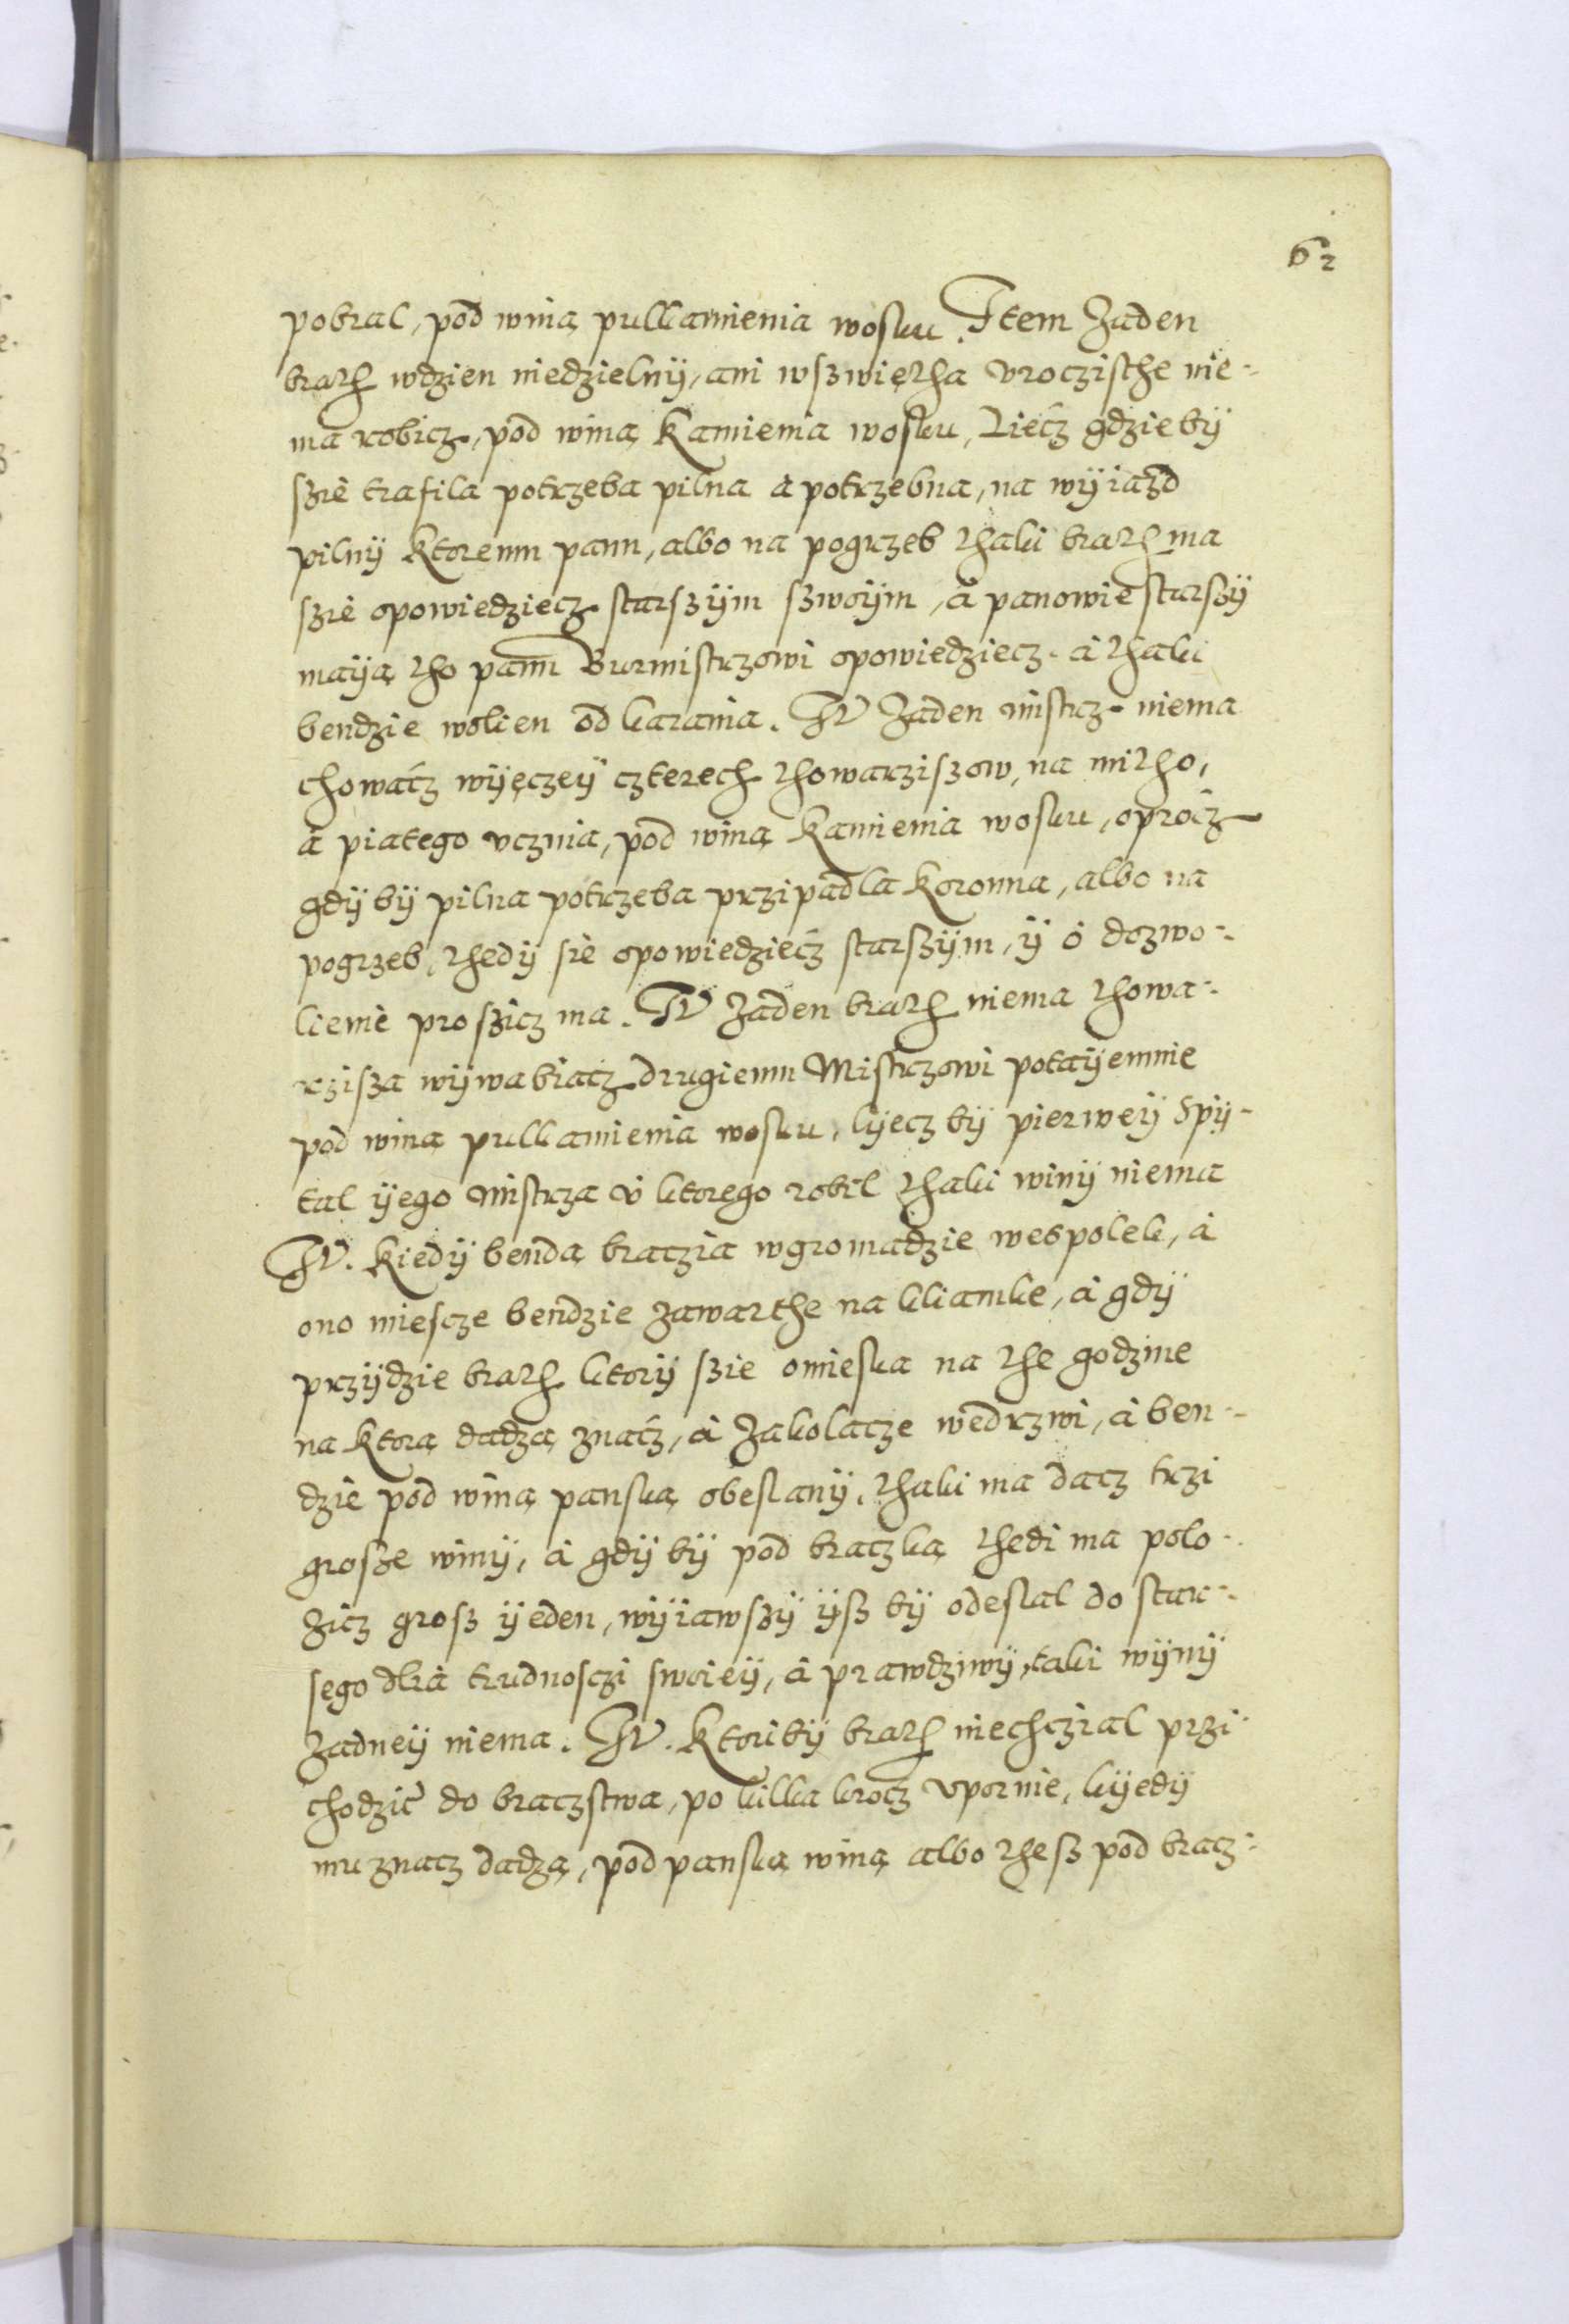 62
pobral, pod winą pulkamienia wosku. Item Żaden
brath wdzien niedzielnÿ, ani wszwiętha vroczisthe nie-
ma robicz, pod winą Kamienia wosku, Liecz gdziebÿ
szie trafila potrzeba pilna a potrzebna, na wÿiazd
pilnÿ Ktoremu panu, albo na pogrzeb thaki brath ma
szie opowiedziecz starszÿm szwoÿm, a panowie starszÿ
maÿą tho panu Burmistrzowi opowiedziecz. a thaki
bendzie wolien od karania. It Żaden mistrz niema
chowacz wÿęczeÿ czterech thowarziszow, na mitho,
a piatego vcznia, pod winą Kamienia wosku, oprocz
gdÿbÿ pilna potrzeba przipadla Koronna, albo na
pogrzeb, thedÿ sie opowiedziecz starszÿm, ÿ o dozwo-
lienie prosicz ma. It Żaden brath niema thowa-
rzisza wÿwabiacz drugiemu Mistrzowi potaÿemnie
pod winą pulkamienia wosku, lÿecz bÿ pierweÿ spÿ-
tal ÿego mistrza v ktorego robil thaki winÿ niema
It. Kiedÿ bendą braczia wgromadzie wespolek, a
ono miescze bendzie zawarthe na kliamke, a gdÿ
przÿdzie brath ktorÿ szie omieska na the godzine
na Ktorą dadzą znacz, a Zakolacze wedrzwi, a ben-
dzie pod winą panską obeslanÿ, thaki ma dacz trzi
grosze winÿ, a gdÿbÿ pod braczką thedi ma polo-
zicz grosz ÿeden, wÿiawszÿ ÿsz bÿ odeslal do star-
sego dlia trudnosczi swoieÿ, a prawdziwÿ, taki wÿnÿ
żadneÿ niema. It. Ktoribÿ brath niechczial przi
chodzić do braczstwa, po kilka krocz vpornie, kÿedÿ
mu znacz dadzą, pod panską winą albo thesz pod bracz-